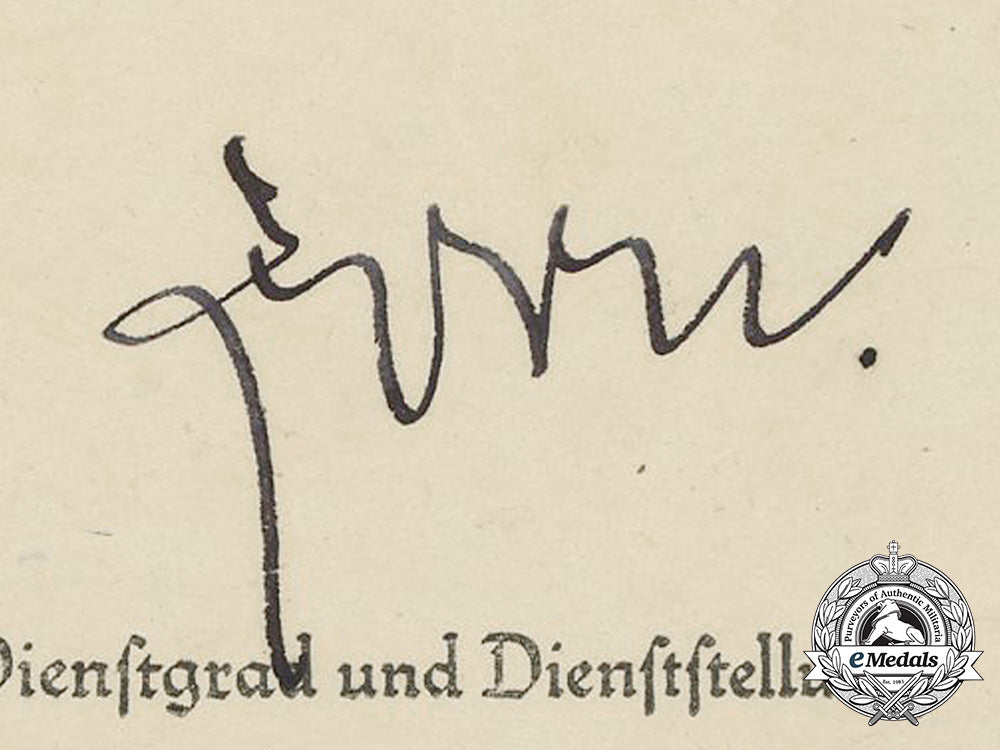 Dienstgrad und Dienststellu
Purveyors of Authentic Militaria
eMedals
Est. 1981